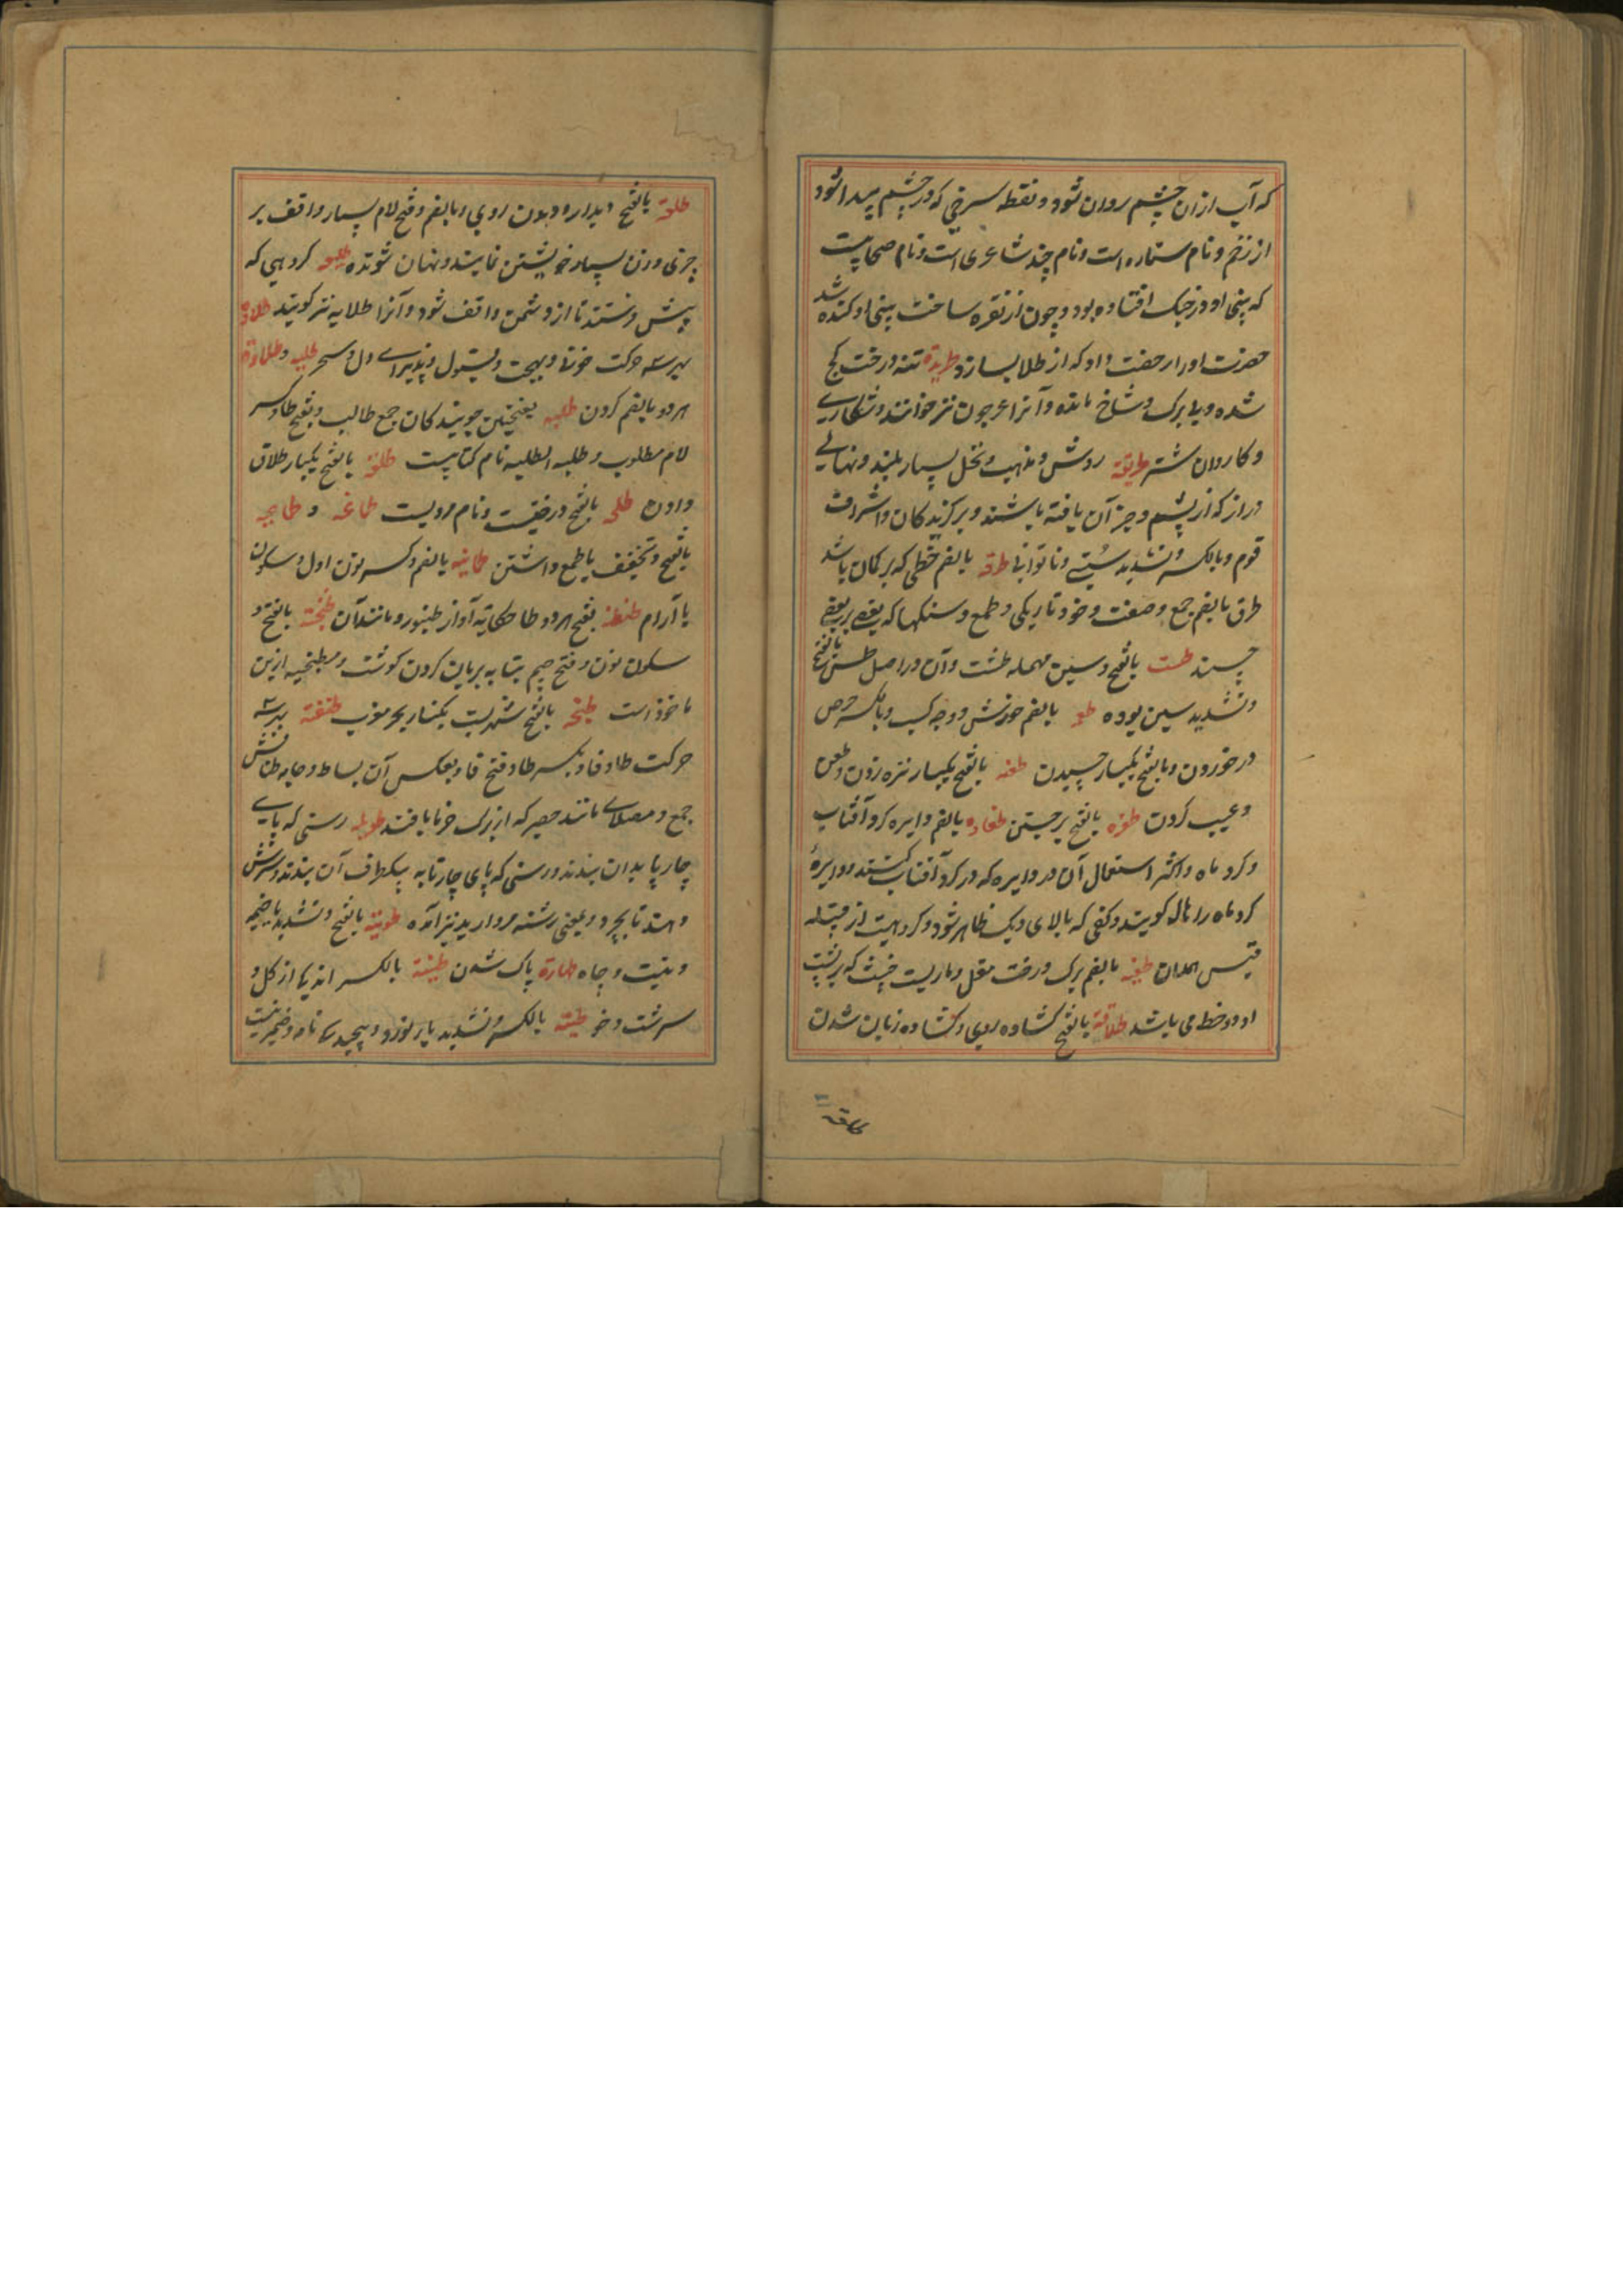 که آب ازان چشم روان شود و نقطه سرخی که در چشم پیدا شود
از زخم و نام ستاره است و نام چند شاعری است و نام صحابیست
که بینی او در جنک افتاده بود و چون از نقره ساخت بینی او کنده شد
حضرت اورا رخصت داد که از طلا بسازد طریده تنه درخت کج
شده و بی برک و شاخ مانده و آنرا عرجون نیز خوانند و شکاری
و کاروان شتر طریقة روش و مذهب و نخل بسیار بلند و نهالی
دراز که از پشم و جز آن بافته باشند و برکزیدکان و اشراف
قوم و بالکسر و تشدید سستی و ناتوانی طرقه بالضم خطی که بر کمان باشد
طرق بالضم جمع و صنعت و خو و تاریکی و طمع و سنکها که بعضی بر بعضی
چسبند طست بالفتح و سین مهمله طشت و آن در اصل طس بالفتح
و تشدید سین بوده طعمه بالضم خورش و وجه کسب و بالکسر حرص
در خوردن و بالفتح یکبار چسیدن طعنه بالفتح یکبار نیزه زدن و طعن
و عیب کردن طفره بالفتح برجستن طفاوه بالضم دایره کرد آفتاب
و کرد ماه و اکثر استعمال آن در دایره که در کرد آفتاب کنند و دایرهٔ
کرد ماه را هاله کویند و کفی که بالای دیک ظاهر شود و کروهیست از قبیله
قیس عیلان طفیه بالضم برک درخت مقل و ماریست خبیث که بر پشت
او دو خط می باشد طلاقة بالفتح کشاده روی و کشاده زبان شدن
طلعة بالفتح دیدار و دیدن روی و بالضم و فتح لام بسیار واقف بر
چیزی و زن بسیار خویشتن نمایند و نهان شونده طلیعه کروهی که
پیش فرستند تا از دشمن واقف شود و آنرا طلایه نیز کویند طلاوة
بهر سه حرکت خوبی و بهجت و قبول و پذیرای دل و سحر طلبه و طلاوة
هردو بالضم کردن طلبه بفتحتین جویندکان جمع طالب و بفتح طا و کسر
لام مطلوب و طلبة الطلبه نام کتابیست طلقة بالفتح یکبار طلاق
دادن طلحه بالفتح درختیست و نام مردیست طماعه و طماعیه
بالفتح و تخفیف یا طمع داشتن طمانینه بالضم و کسر نون اول و سکون
یا آرام طنطنه بفتح هر دو طا حکایة آواز طنبور و مانند آن طنجة بالفتح و
سکون نون و فتح جیم بتابه بریان کردن کوشت و مطنجنه ازین
ماخوذ است طنجه بالفتح شهریست بکنار بحر مغرب طنفسة بهر سه
حرکت طا و فا و بکسر طا و فتح فا و بعکس آن بساط و جامه طنافس
جمع و مصلای مانند حصیر که از برک خرما بافند طویله رسنی که پای
چارپا بدان بندند و رسنی که پای چارپا به یکطرف آن بندند و سرش
دهند تا بچرد و بمعنی رشته مروارید نیز آمده طویة بالفتح و تشدید یا ضمیر
و نیت و چاه طهارة پاک شدن طینة بالکسر اندک از کل و
سرشت و خو طیة بالکسر و تشدید یا نورد و پیچیدن نامه و ضمیر نیت
طلعة